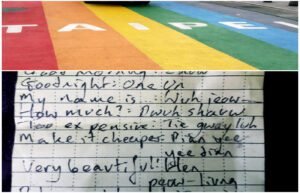 TAIPE
Good morning: Zaow
Goodnight: One un
My name is: Wuh jeow
How much?: Dwuh shaow
Too expensive: Tie gway luh
Make it cheaper: Pian yee
yee dian
Very beautiful: Hen
peow-liang